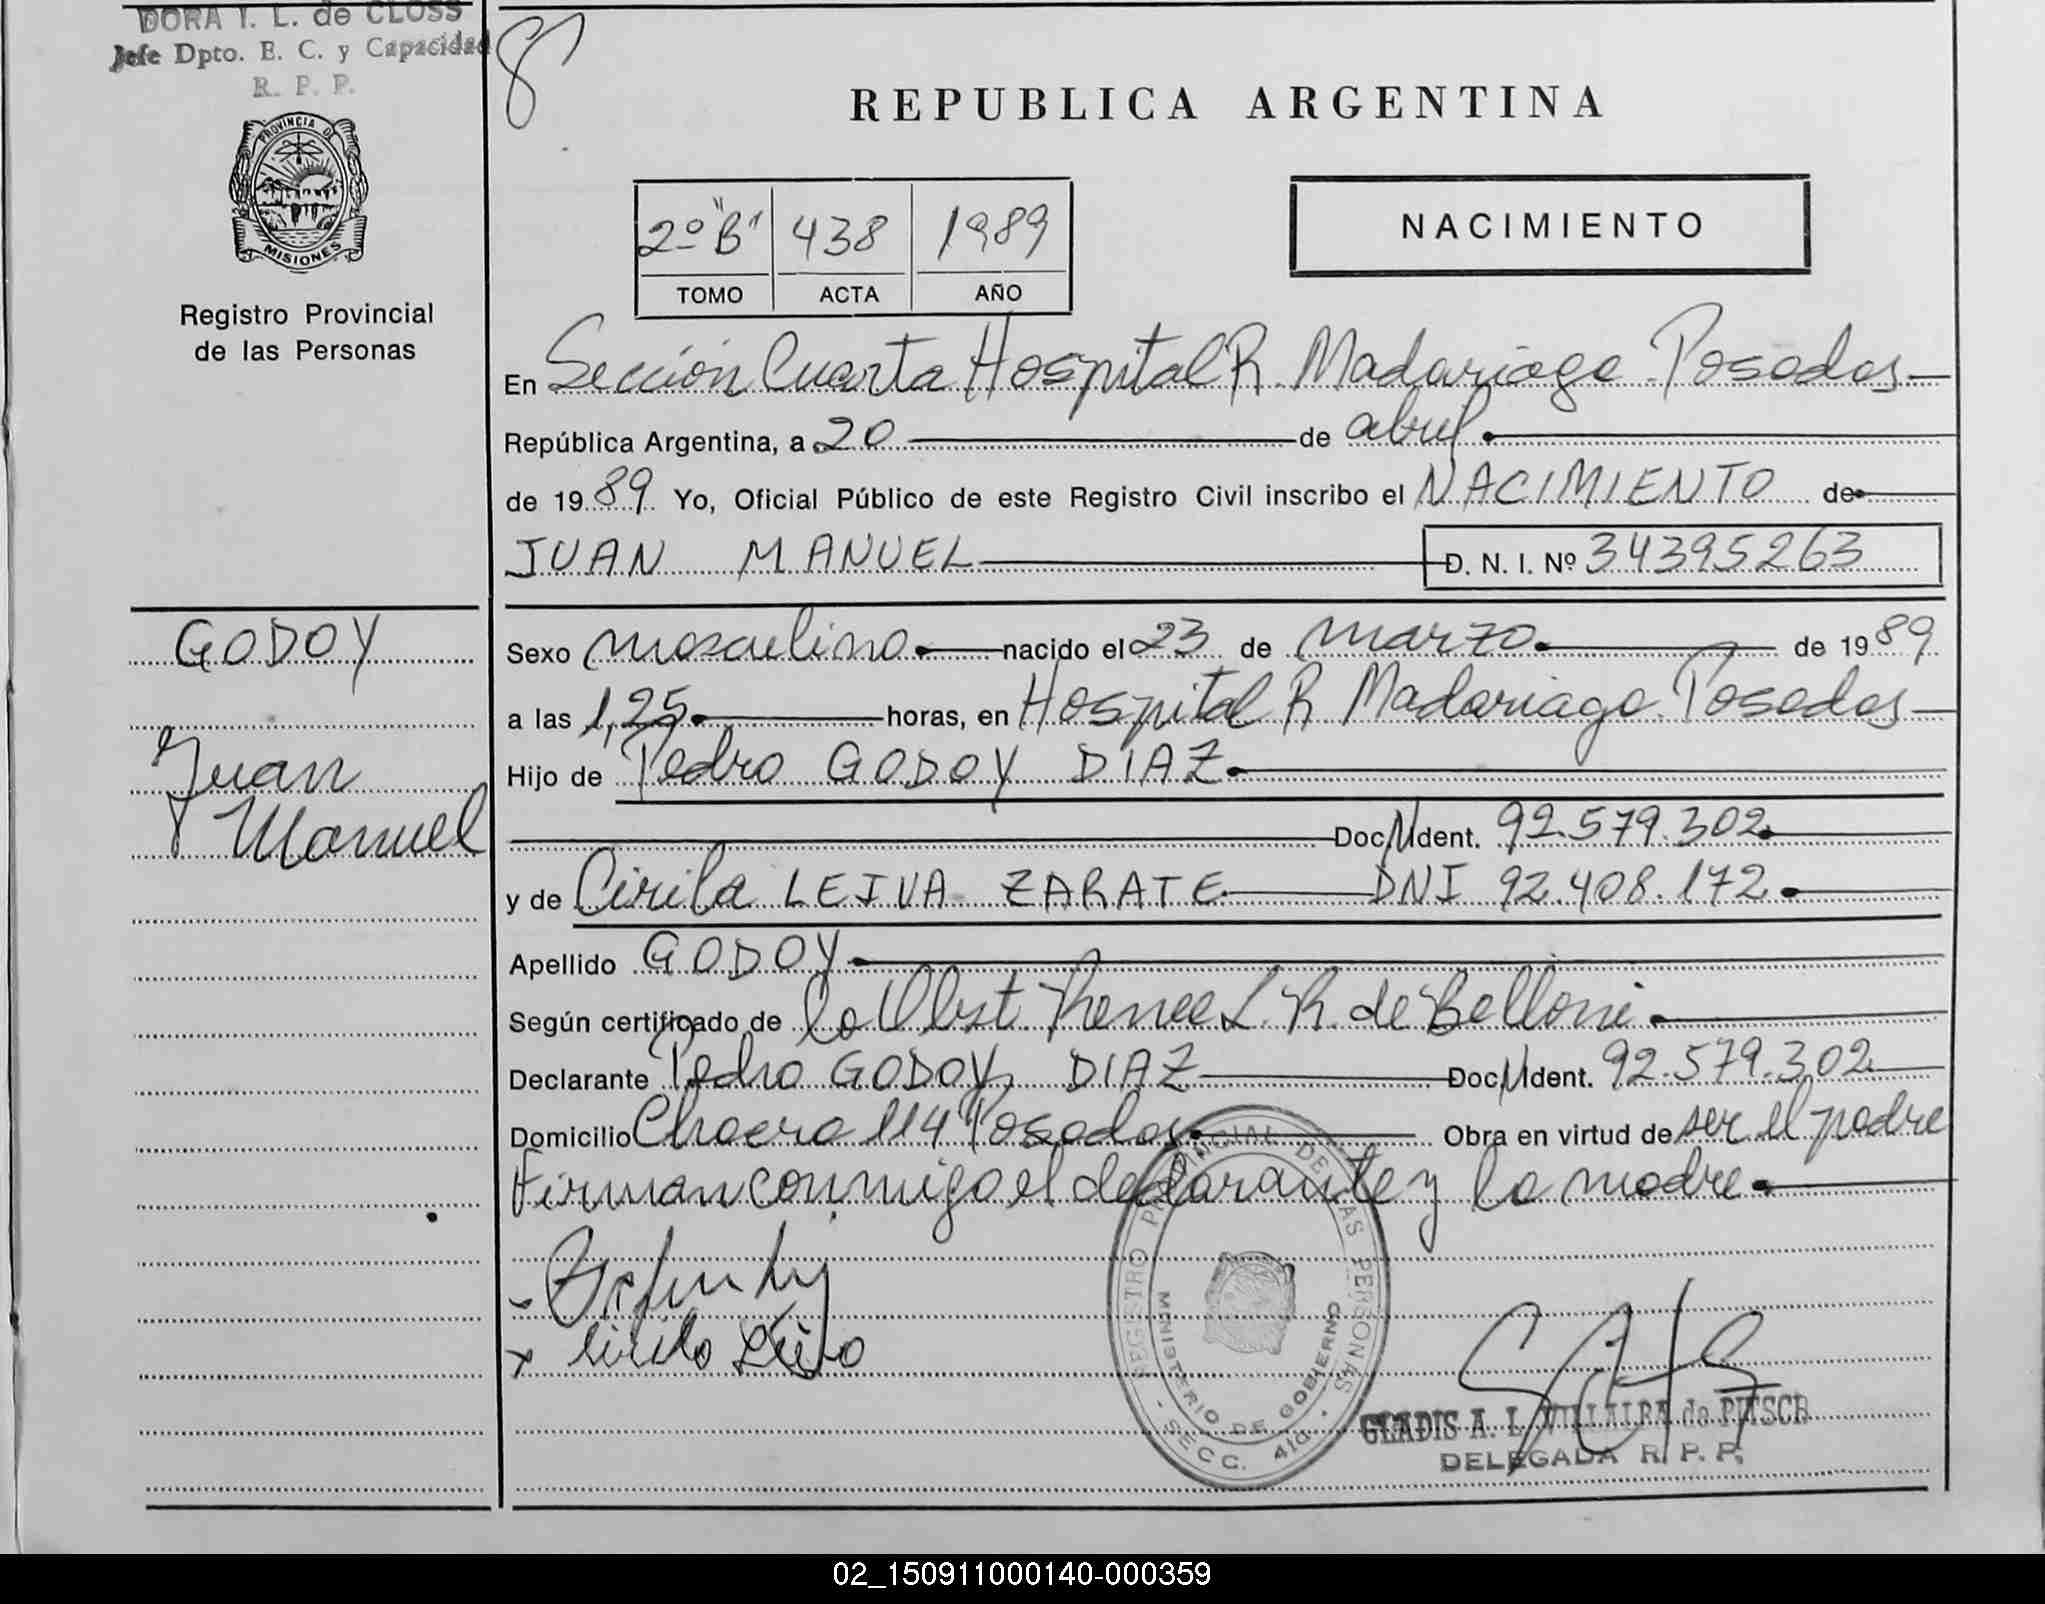 DORA I. L. de CLOSS
Jefe Dpto. E. C. y Capacidad
R. P. P.
PROVINCIA DE
MISIONES
Registro Provincial
de las Personas
GODOY
Juan
Manuel
8
REPUBLICA ARGENTINA
2º "B" 438 1989
TOMO ACTA AÑO
NACIMIENTO
En Sección Cuarta Hospital R. Madariaga. Posadas
República Argentina, a 20 de abril
de 1989 Yo, Oficial Público de este Registro Civil inscribo el NACIMIENTO de
JUAN MANUEL D. N. I. Nº 34395263
Sexo masculino nacido el 23 de marzo de 1989
a las 1,25 horas, en Hospital R. Madariaga. Posadas
Hijo de Pedro GODOY DIAZ
Doc. Ident. 92.579.302
y de Cirila LEIVA ZARATE DNI 92.408.172
Apellido GODOY
Según certificado de la Obst. Renee L. R. de Belloni
Declarante Pedro GODOY DIAZ Doc. Ident. 92.579.302
Domicilio 114 Posadas Obra en virtud de ser el padre
Firman conmigo el declarante y la madre
Cirila Leiva
REGISTRO PROVINCIAL DE LAS PERSONAS
MINISTERIO DE GOBIERNO
SECC. 4ta.
GLADIS A. L. VILLALBA de PITSCH
DELEGADA R. P. P.
02_150911000140-000359